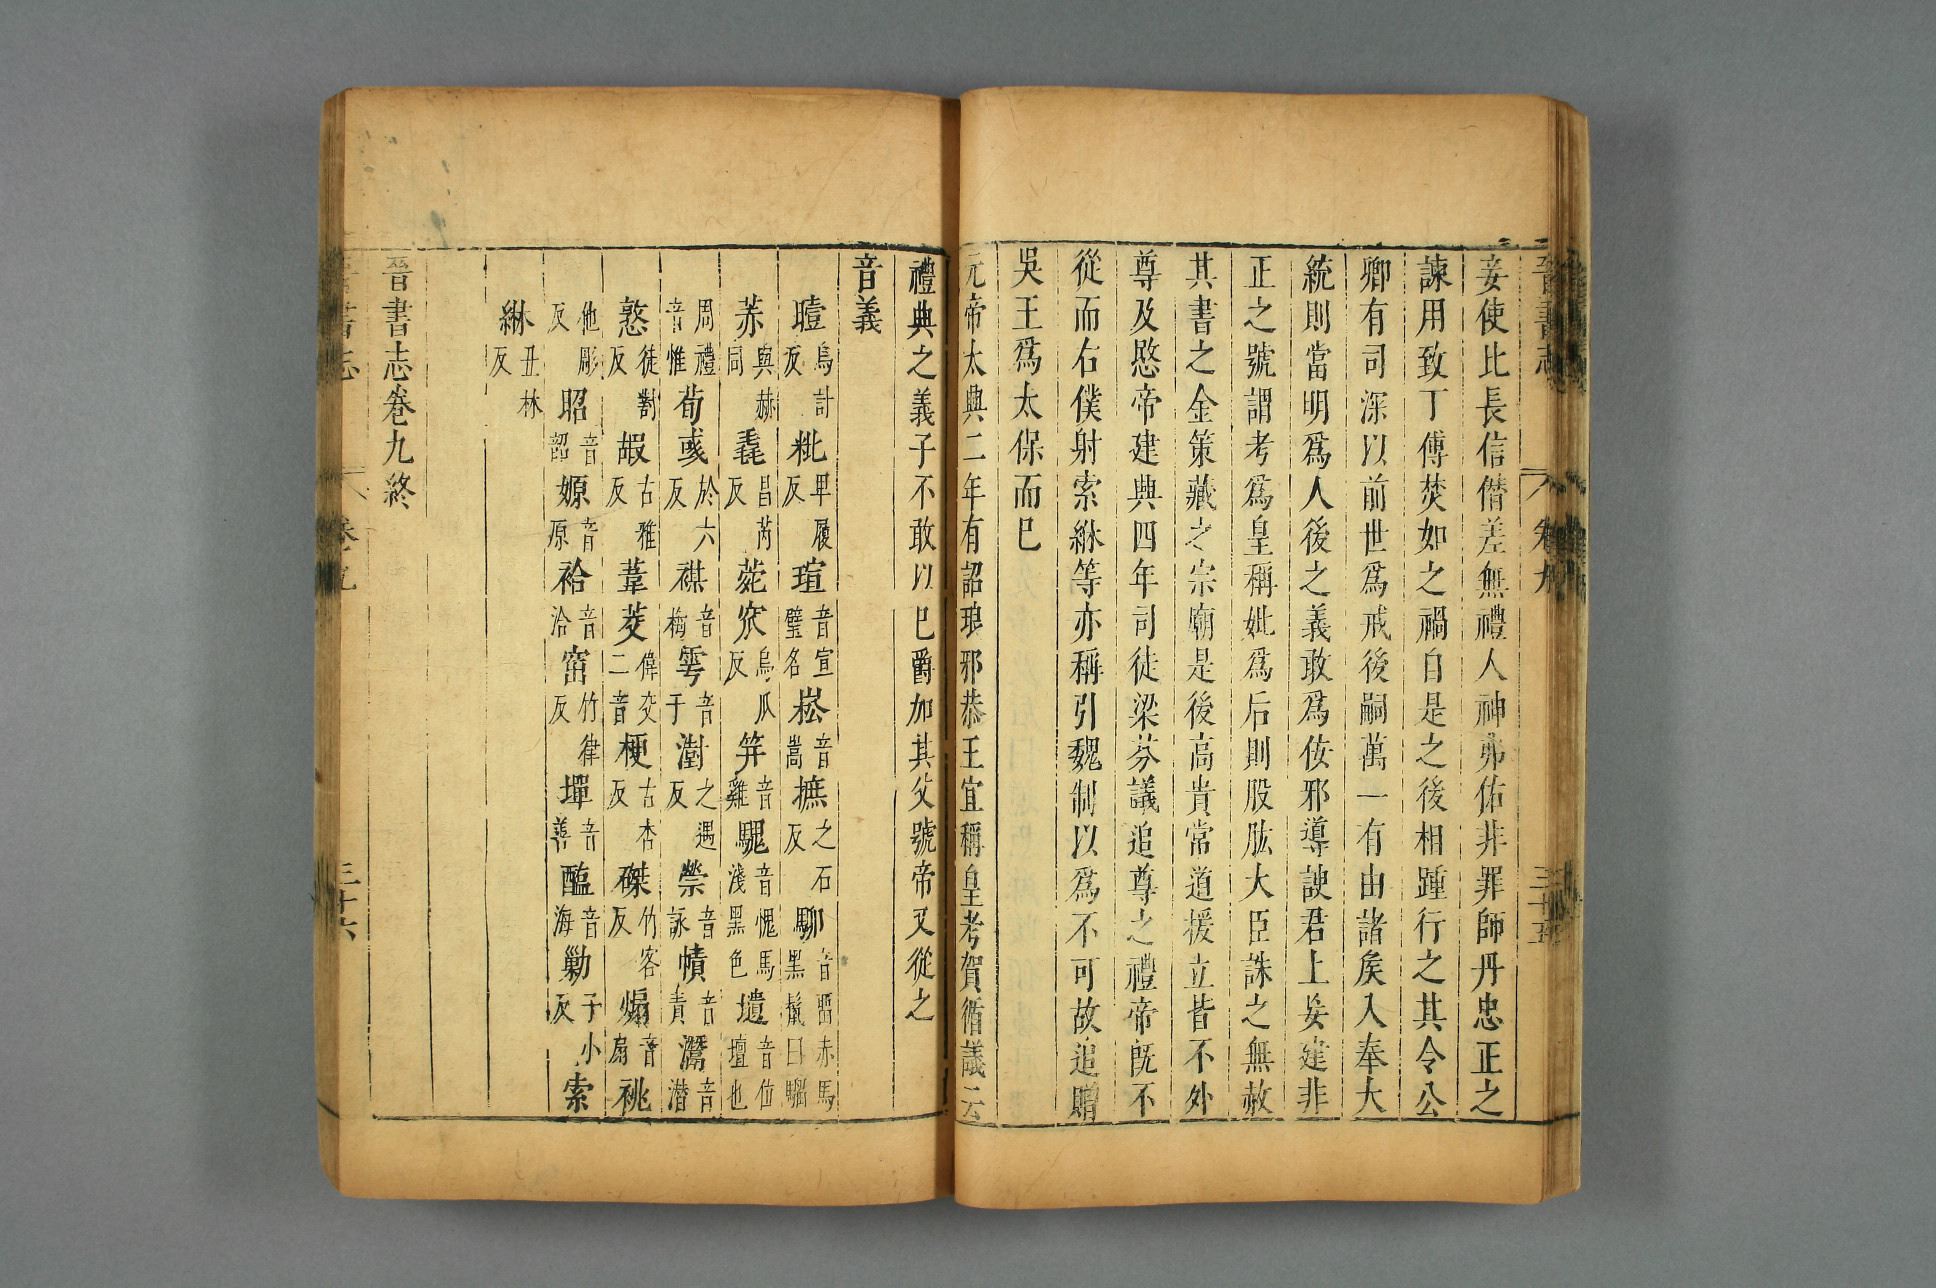 妾使比長信僭差無禮人神弗佑非罪師丹忠正之
諫用致丁傅焚如之禍自是之後相踵行之其令公
卿有司深以前世爲戒後嗣萬一有由諸矦入奉大
統則當明爲人後之義敢爲佞邪導諛君上妄建非
正之號謂考爲皇稱妣爲后則股肱大臣誅之無赦
其書之金策藏之宗廟是後高貴常道援立皆不外
尊及愍帝建興四年司徒梁芬議追尊之禮帝旣不
從而右僕射索綝等亦稱引魏制以爲不可故追贈
吳王爲太保而巳
元帝太興二年有詔琅邪恭王宜稱皇考賀循議云
禮典之義子不敢以巳爵加其父號帝又從之
音義
曀烏計反 粃甲履反 瑄音宣璧名 崧音嵩 摭之石反 駵音畱赤馬黑鬣曰騮
荞與赫同 毳昌芮反 菆 窊烏瓜反 笄音雞 騩音愧馬淺黑色 壝音位壇也
周禮音惟 荀彧於六反 禖音梅 雩音于 澍之遇反 禜音詠 幘音責 灊音潛
憝徒對反 嘏古雅反 葦茭偉交二音 梗古杏反 磔竹客反 煽音扇 祧
他彫反 昭音韶 嫄音原 祫音洽 窋竹律反 墠音善 醢音海 勦子小反 索
綝丑林反
晉書志卷九終
晉書志
卷九
三十五
卷九
三十六